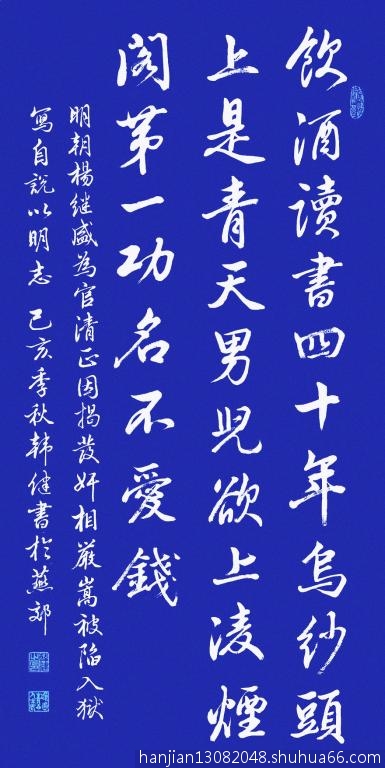 飲酒讀書四十年烏紗頭
上是青天男児欲上凌煙
閣第一功名不愛錢
明朝楊继盛為官清正因揭發奸相嚴嵩被陷入獄
寫自說以明志 己亥季秋韩健書於燕郊
hanjian13082048.shuhua66.com